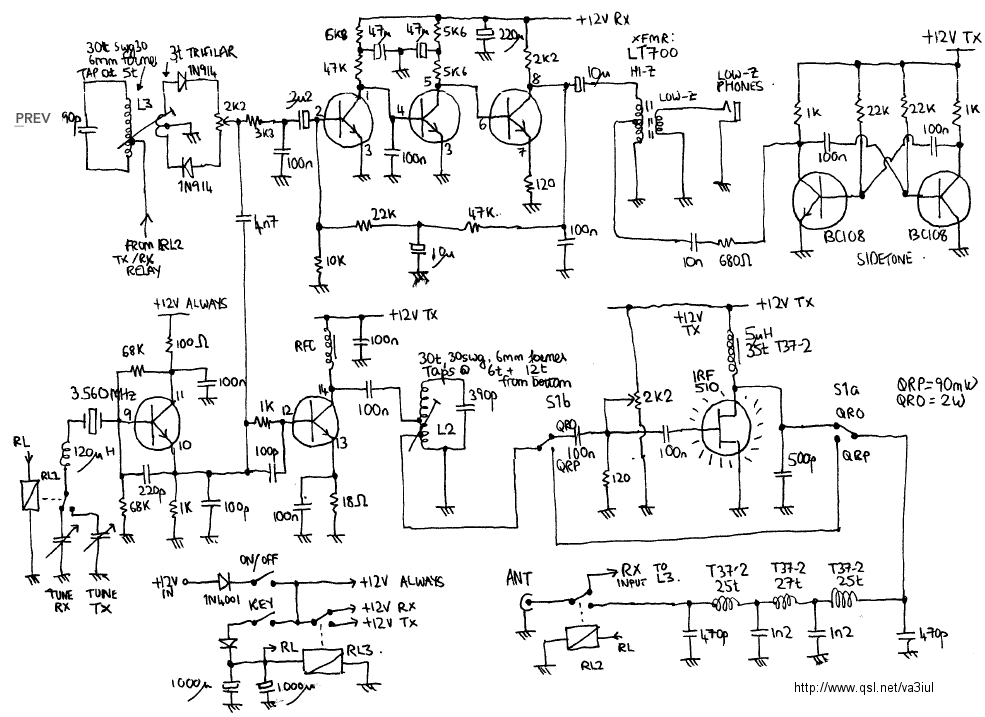 +12V Rx
+12V Tx
30t swg30
6mm former
TAP at 5t
3t TRIFILAR
1N914
L3
90p
PREV
2K2
3K3
100n
1N914
FROM RL2
TX/RX
RELAY
4n7
2u2
2
6K8
47µ
47µ
5K6
47K
5K6
220µ
2K2
1
3
4
5
3
100n
6
7
8
10µ
120
22K
47K
10µ
10K
100n
XFMR:
LT700
HI-Z
LOW-Z
LOW-Z
PHONES
10n
680Ω
1K
22K
22K
1K
100n
100n
BC108
BC108
SIDETONE
+12V ALWAYS
100Ω
68K
100n
3.560MHz
9
11
10
120µH
RL
RL1
220p
68K
1K
100p
TUNE
RX
TUNE
TX
+12V Tx
RFC
100n
14
1K
12
13
100p
100n
18Ω
100n
30t, 30swg, 6mm former
Taps @ 6t + 12t
from bottom
390p
L2
S1b
QRO
QRP
100n
120
2K2
100n
+12V
TX
+12V Tx
5µH
35t T37-2
IRF
510
500p
S1a
QRO
QRP
QRP=90mW
QRO=2W
+12V
IN
1N4001
ON/OFF
+12V ALWAYS
KEY
+12V RX
+12V TX
RL
RL3
1000µ
1000µ
ANT
RX
INPUT TO
L3
RL2
RL
T37-2
25t
T37-2
27t
T37-2
25t
470p
1n2
1n2
470p
http://www.qsl.net/va3iul